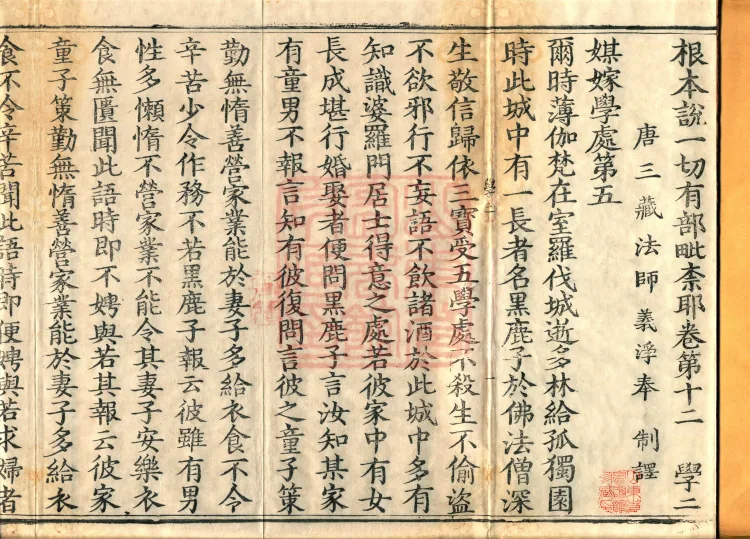 根本說一切有部毗柰耶卷第十二 學二
唐三藏法師義淨奉 制譯
媒嫁學處第五
爾時薄伽梵在室羅伐城逝多林給孤獨園
時此城中有一長者名黑鹿子於佛法僧深
生敬信歸依三寶受五學處不殺生不偷盜
不欲邪行不妄語不飲諸酒於此城中多有
知識婆羅門居士得意之處若彼家中有女
長成堪行婚娶者便問黑鹿子言汝知某家
有童男不報言知有彼復問言彼之童子策
勤無惰善營家業能於妻子多給衣食不令
辛苦少令作務不若黑鹿子報云彼雖有男
性多懶惰不營家業不能令其妻子安樂衣
食無匱聞此語時即不娉與若其報云彼家
童子策勤無惰善營家業能於妻子多給衣
食不令辛苦聞此語時即便娉與若求婦者